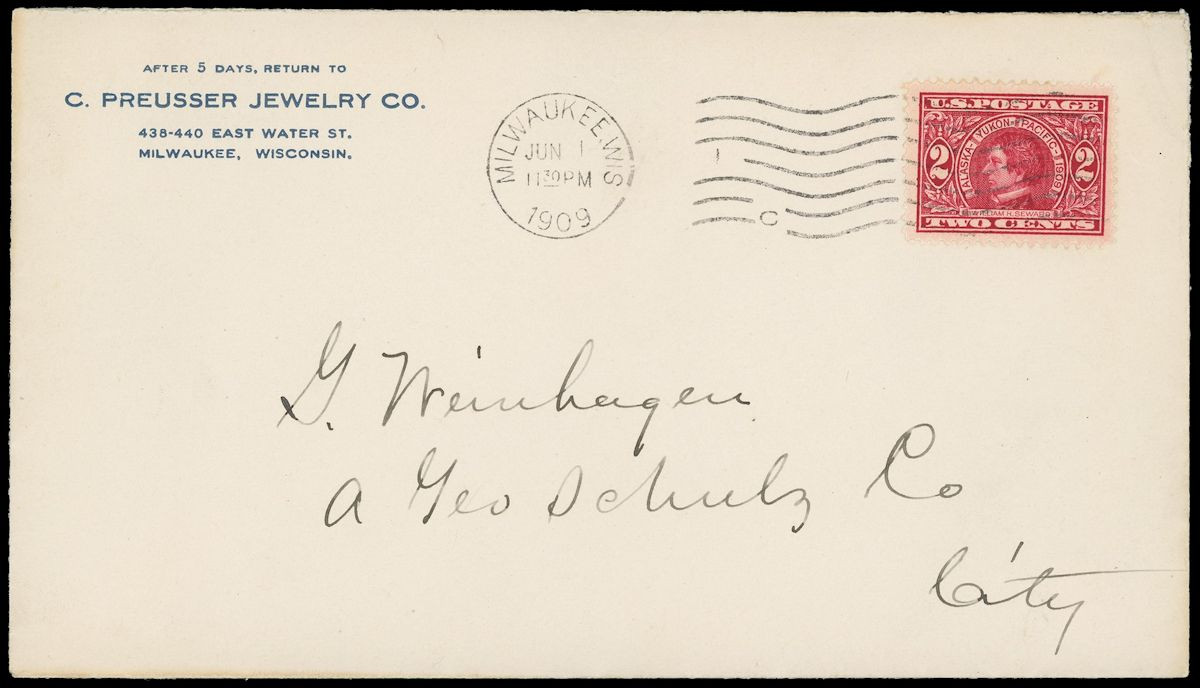 AFTER 5 DAYS, RETURN TO
C. PREUSSER JEWELRY CO.
438-440 EAST WATER ST.
MILWAUKEE, WISCONSIN.
MILWAUKEE, WIS
JUN 1
11 30 PM
1909
1
C
U.S. POSTAGE
ALASKA-YUKON-PACIFIC 1909
2 2
WILLIAM H. SEWARD
TWO CENTS
G. Weinhagen
a Geo Schulz Co
City